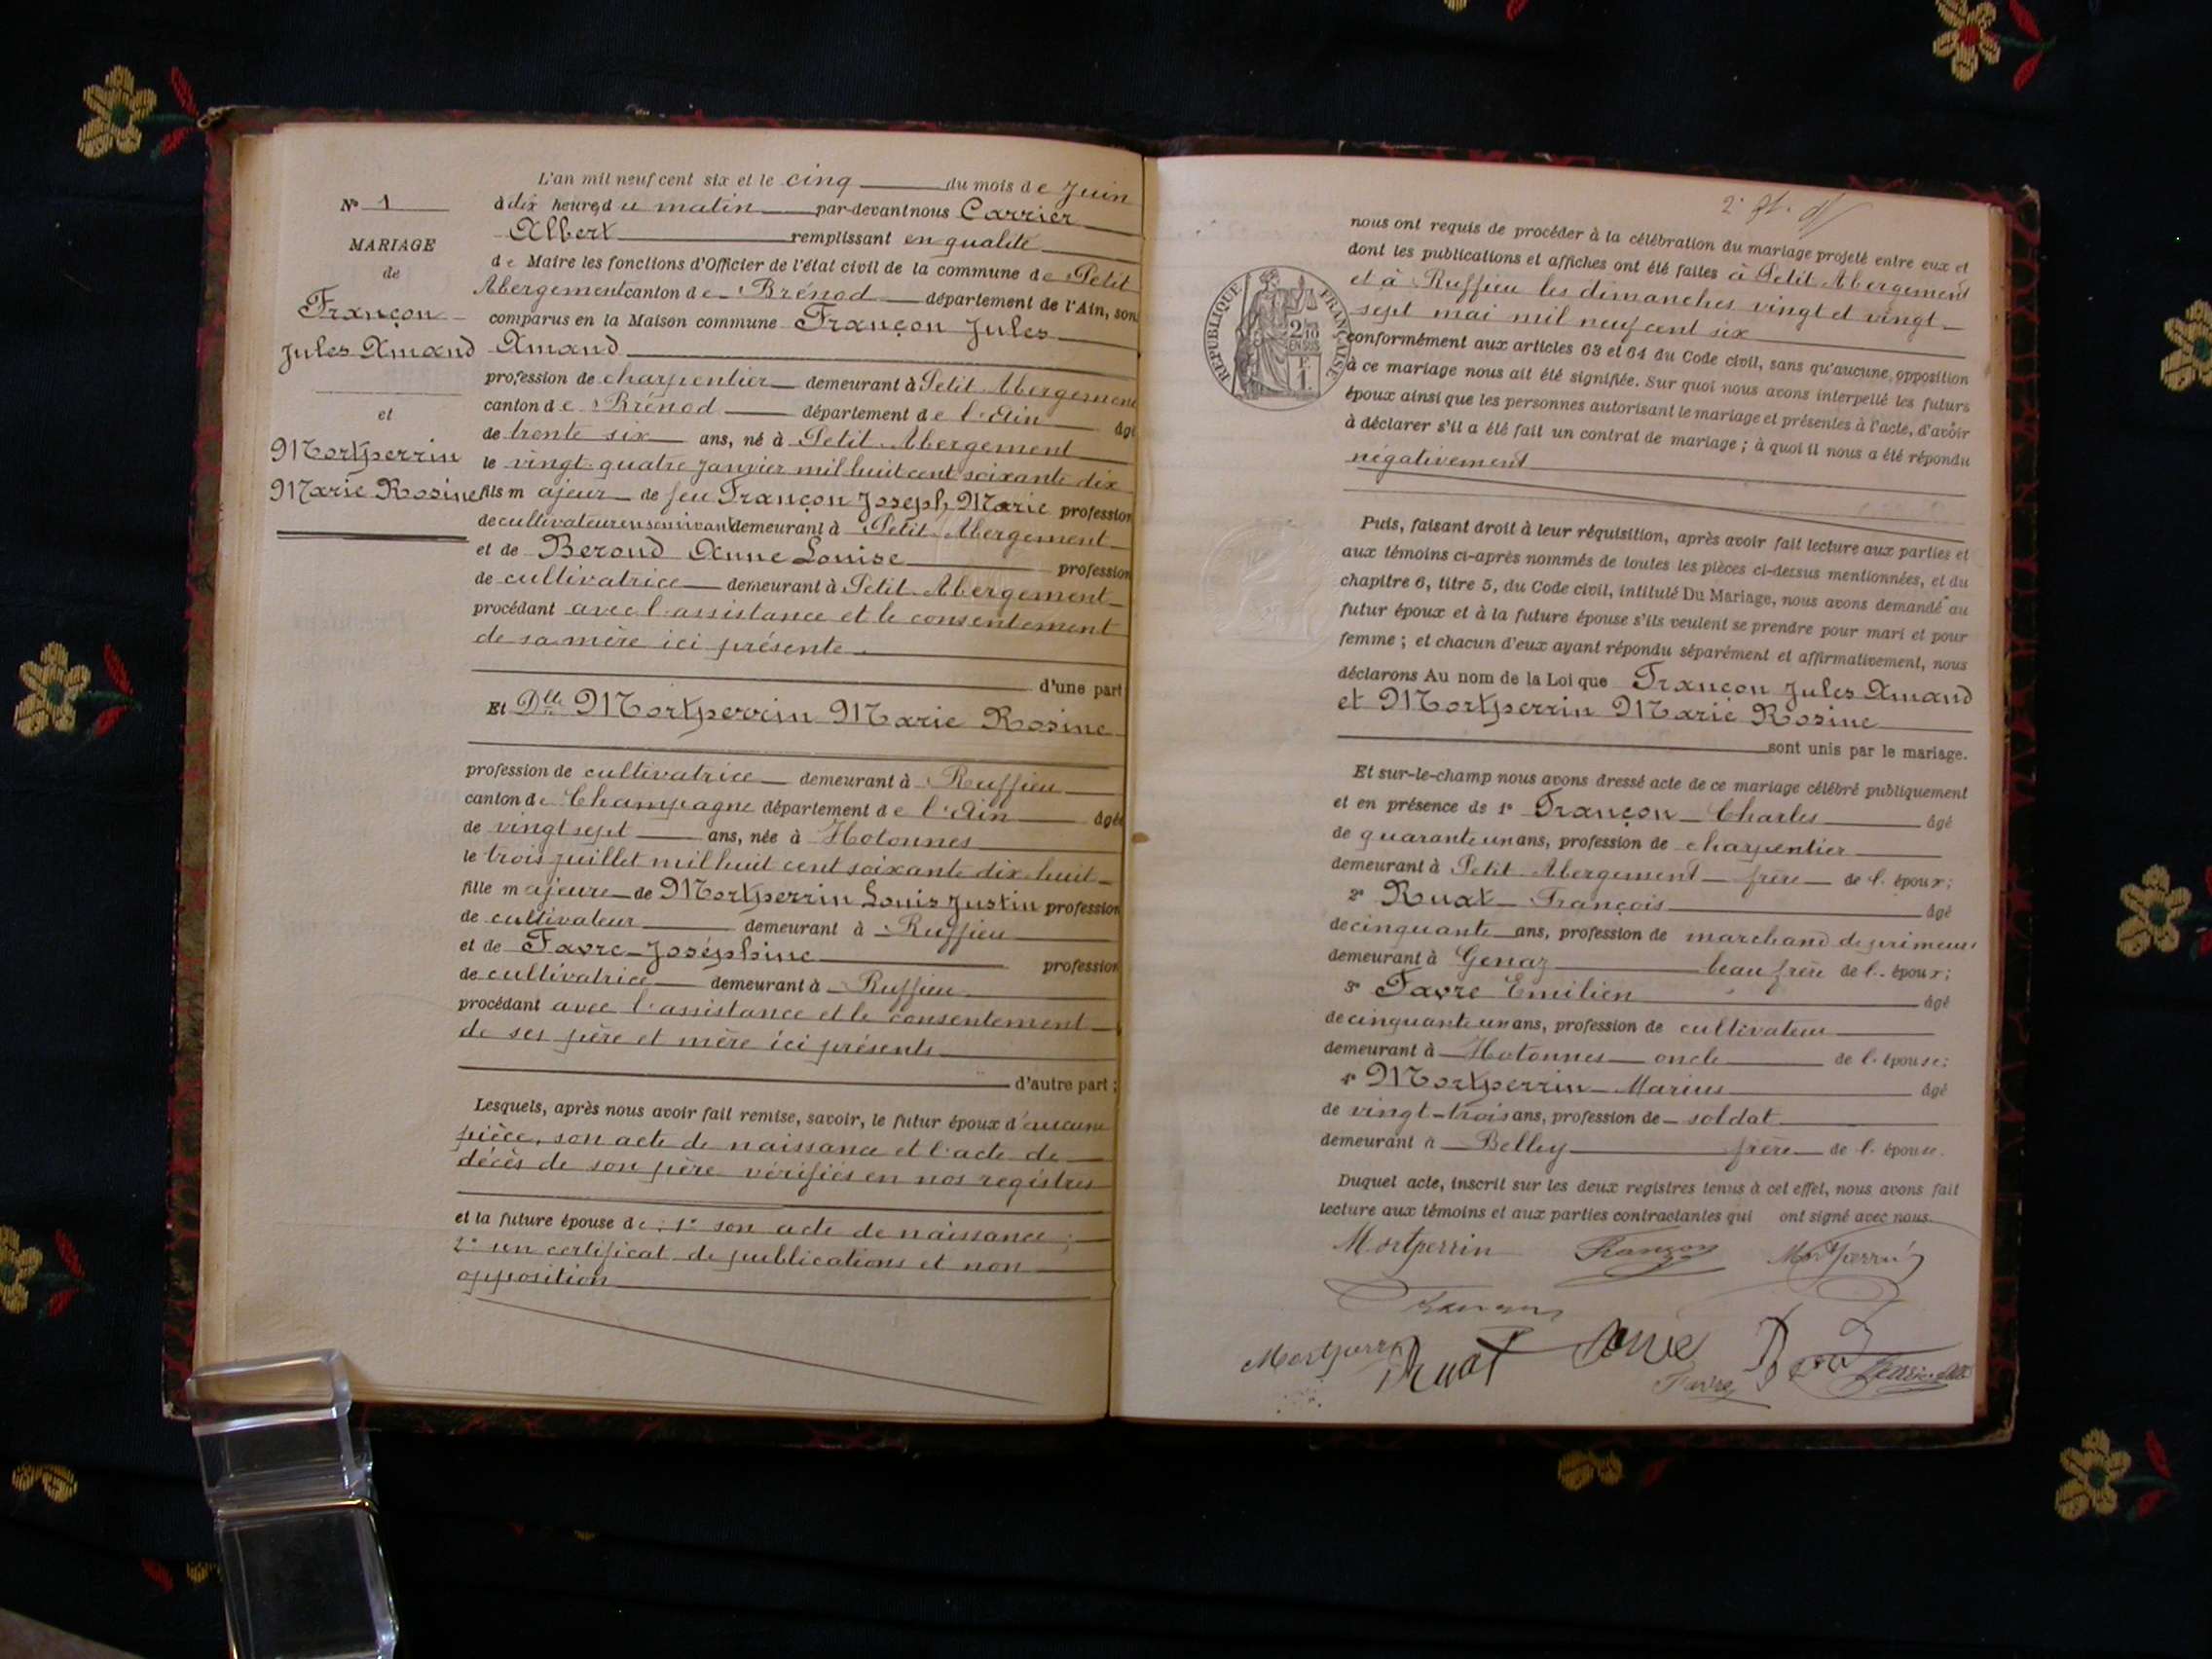 N° 1
MARIAGE
de
Françon
Jules Amand
et
Mortperrin
Marie Rosine
L'an mil neuf cent six et le cinq du mois de Juin
à dix heures du matin par-devant nous Carrier
Albert remplissant en qualité
de Maire les fonctions d'Officier de l'état civil de la commune de Petit
Abergement canton de Brénod département de l'Ain, son
comparus en la Maison commune Françon Jules
Amand
profession de charpentier demeurant à Petit Abergement
canton de Brénod département de l'Ain âgé
de trente six ans, né à Petit Abergement
le vingt quatre Janvier mil huit cent soixante dix
fils majeur de feu Françon Joseph Marie profession
de cultivateur en son vivant demeurant à Petit Abergement
et de Beroud Anne Louise profession
de cultivatrice demeurant à Petit Abergement
procédant avec l'assistance et le consentement
de sa mère ici présente
d'une part
Et Dlle Mortperrin Marie Rosine
profession de cultivatrice demeurant à Ruffieu
canton de Champagne département de l'Ain âgée
de vingt sept ans, née à Hotonnes
le trois juillet mil huit cent soixante dix huit
fille majeure de Mortperrin Louis Justin profession
de cultivateur demeurant à Ruffieu
et de Favre Joséphine profession
de cultivatrice demeurant à Ruffieu
procédant avec l'assistance et le consentement
de ses père et mère ici présents
d'autre part ;
Lesquels, après nous avoir fait remise, savoir, le futur époux d'aucune
pièce, son acte de naissance et l'acte de
décès de son père vérifiés en nos registres
et la future épouse de : 1° son acte de naissance ;
2° un certificat de publications et non
opposition
nous ont requis de procéder à la célébration du mariage projeté entre eux et
dont les publications et affiches ont été faites à Petit Abergement
et à Ruffieu les dimanches vingt et vingt
sept mai mil neuf cent six
conformément aux articles 63 et 64 du Code civil, sans qu'aucune opposition
à ce mariage nous ait été signifiée. Sur quoi nous avons interpellé les futurs
époux ainsi que les personnes autorisant le mariage et présentes à l'acte, d'avoir
à déclarer s'il a été fait un contrat de mariage ; à quoi il nous a été répondu
négativement
RÉPUBLIQUE FRANÇAISE
Puis, faisant droit à leur réquisition, après avoir fait lecture aux parties et
aux témoins ci-après nommés de toutes les pièces ci-dessus mentionnées, et du
chapitre 6, titre 5, du Code civil, intitulé Du Mariage, nous avons demandé au
futur époux et à la future épouse s'ils veulent se prendre pour mari et pour
femme ; et chacun d'eux ayant répondu séparément et affirmativement, nous
déclarons Au nom de la Loi que Françon Jules Amand
et Mortperrin Marie Rosine
sont unis par le mariage.
Et sur-le-champ nous avons dressé acte de ce mariage célébré publiquement
et en présence de 1° Françon Charles âgé
de quarante un ans, profession de charpentier
demeurant à Petit Abergement frère de l'époux ;
2° Ruat François âgé
de cinquante ans, profession de marchand de primeurs
demeurant à Genaz beau frère de l'époux ;
3° Favre Emilien âgé
de cinquante un ans, profession de cultivateur
demeurant à Hotonnes oncle de l'épouse ;
4° Mortperrin Marius âgé
de vingt-trois ans, profession de soldat
demeurant à Belley frère de l'épouse.
Duquel acte, inscrit sur les deux registres tenus à cet effet, nous avons fait
lecture aux témoins et aux parties contractantes qui ont signé avec nous.
Mortperrin Françon Mortperrin
Françon
Mortperrin Ruat
Favre